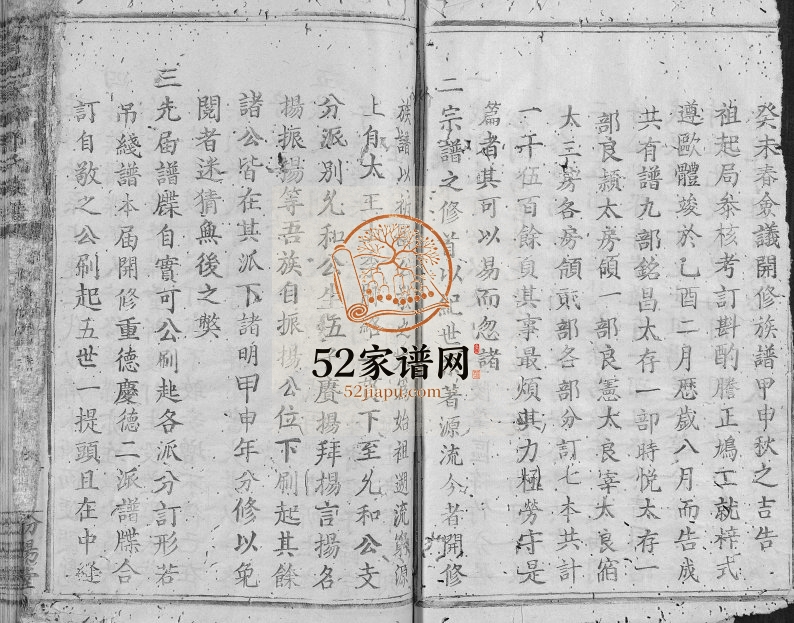 癸未春僉議開修族譜甲申秋之吉告
祖起局叅核考訂斟酌謄正鳩工就梓式
遵歐體竣於乙酉二月歷歲八月而告成
共有譜九部銘昌太存一部時悦太存一
部良穎太房領一部良憲太良宰太良宿
太三房各房領貳部各部分訂七本共計
一千伍百餘頁其事最煩其力極勞守是
篇者其可以易而忽諸
二宗譜之修首以紀世著源流今者開修
族譜以始祖遡流窮源
上自太王下至允和公支
分派别允和公生五賡揚拜揚言揚名
揚振揚等吾族自振揚公位下刷起其餘
諸公皆在其派下諸明甲申年分修以免
閲者迷猜無後之獘
三先届譜牒自實可公刷起各派分訂形若
吊綫譜本届開修重德慶德二派譜牒合
訂自敬之公刷起五世一提頭且在中縫
52家谱网
52jiapu.com